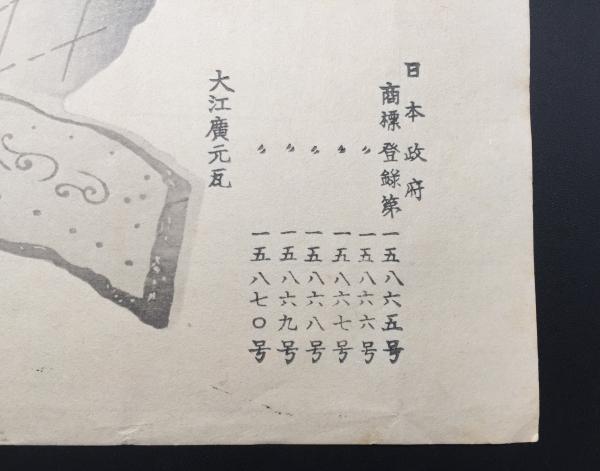 日本政府
商標登錄第一五八六五号
〃一五八六六号
〃一五八六七号
〃一五八六八号
〃一五八六九号
〃一五八七〇号
大江廣元瓦